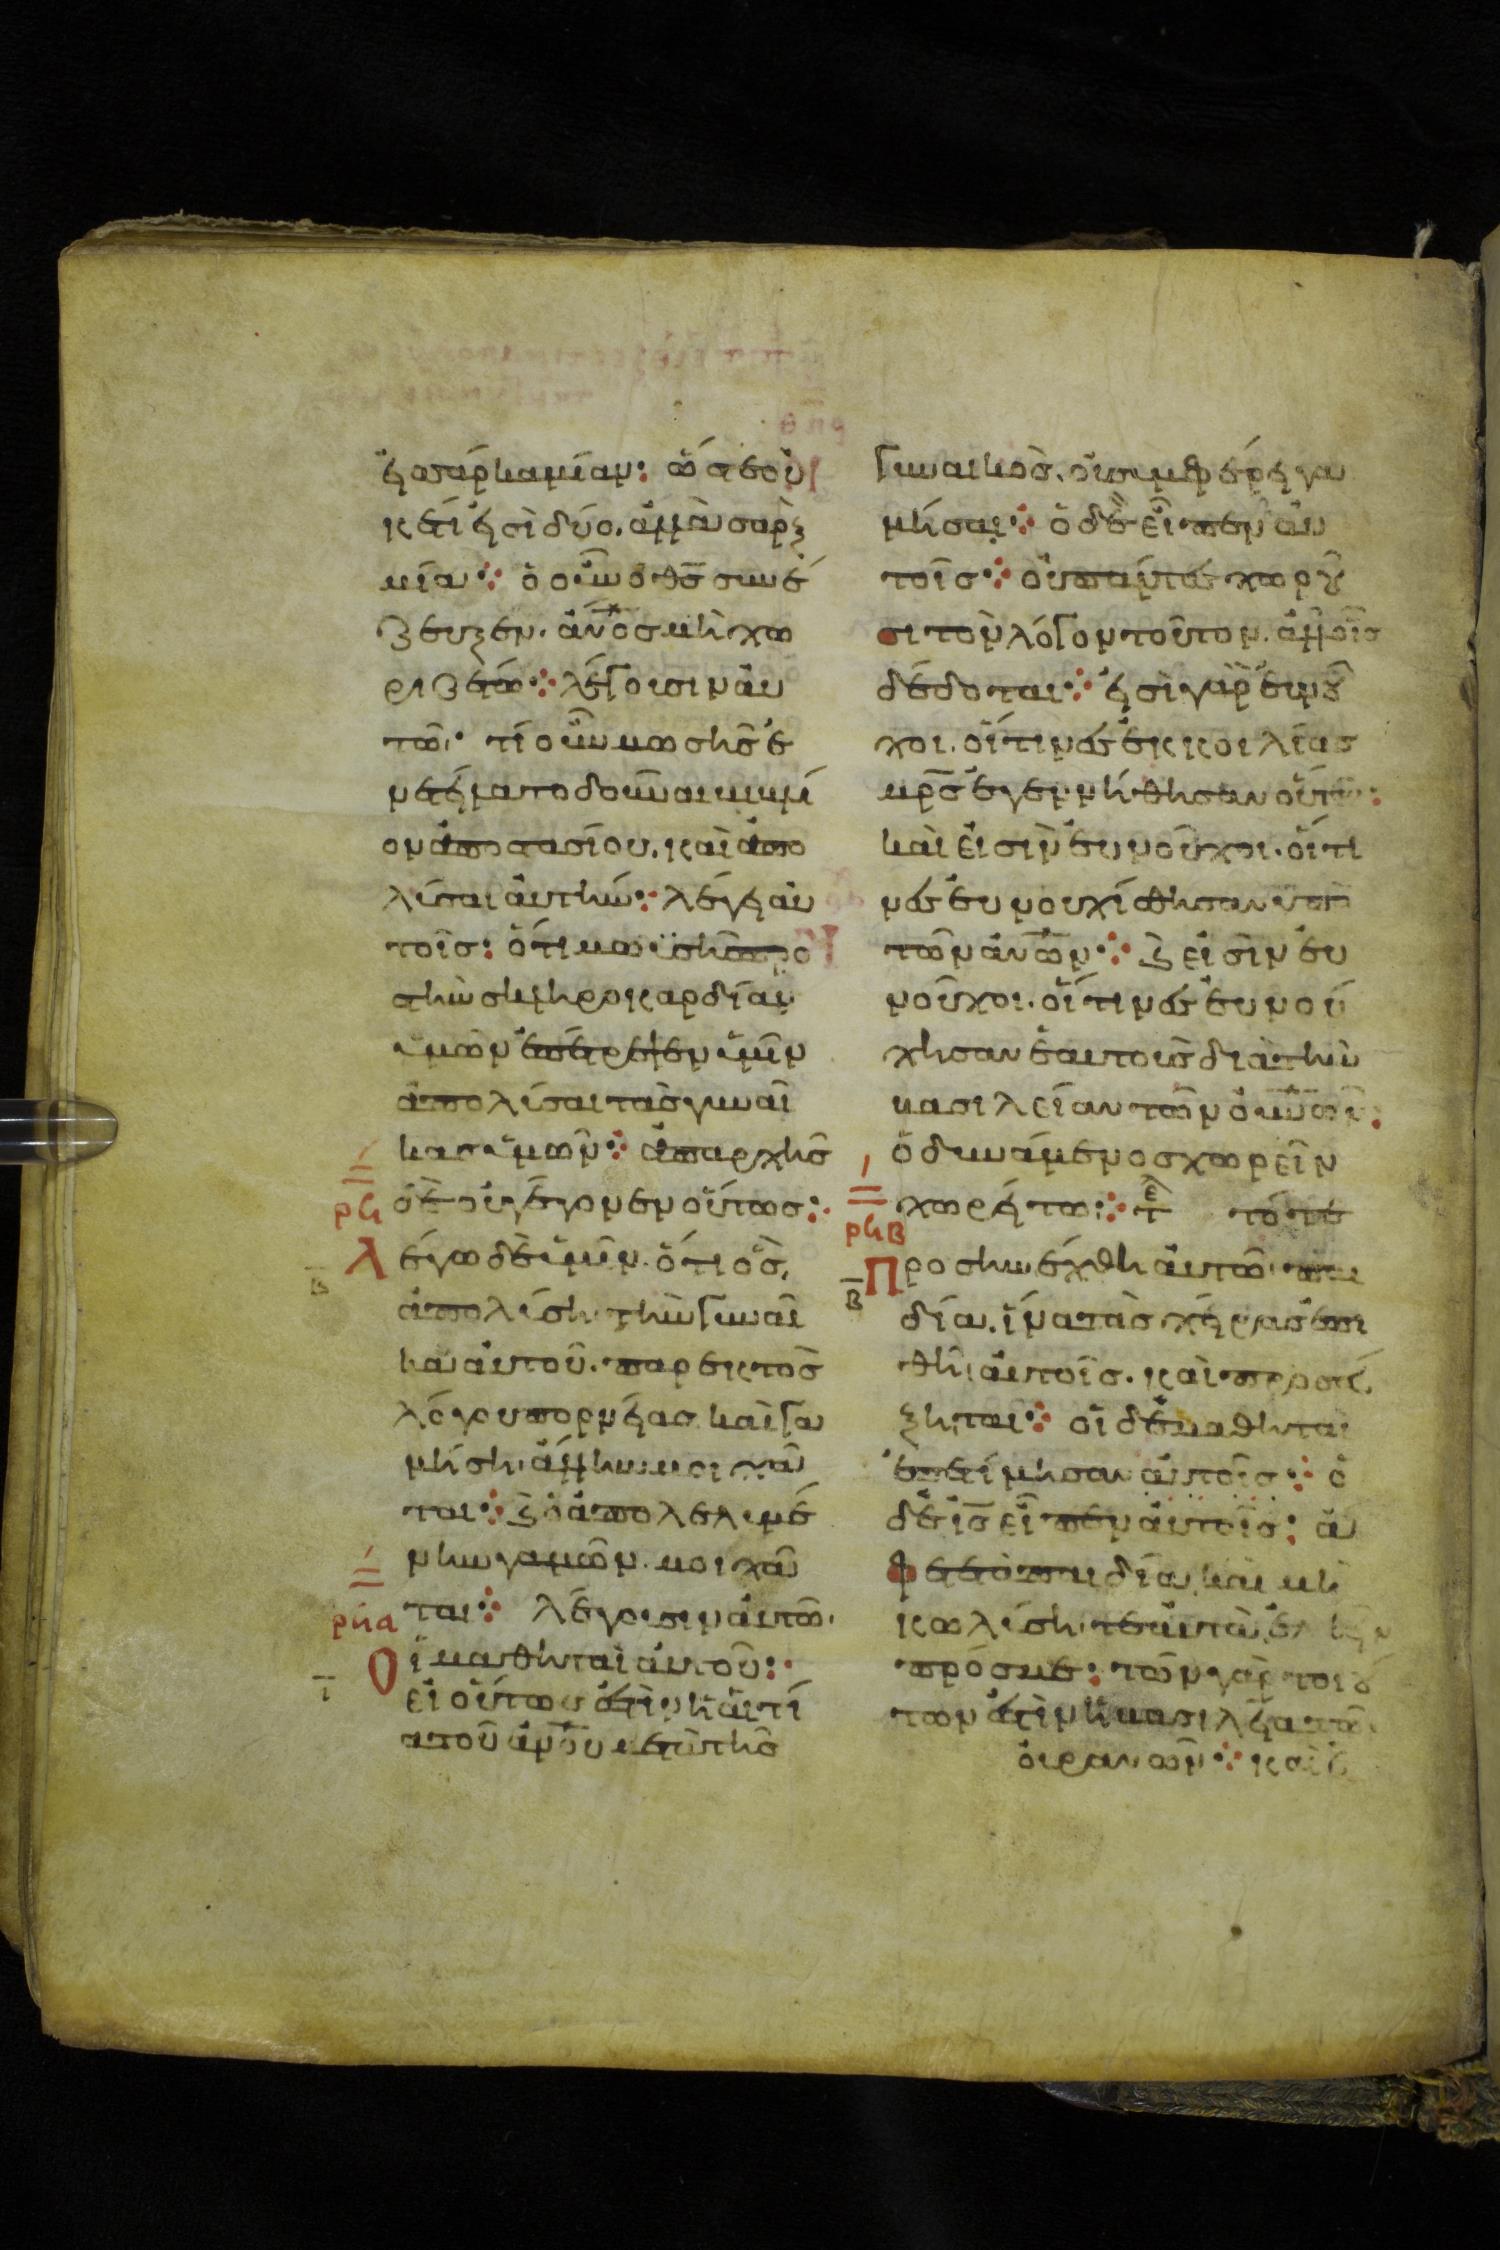 εἰς σάρκα μίαν: ὥστε οὐ
κέτι εἰσὶ δύο. ἀλλὰ σὰρξ
μία⁘ ὁ οὖν ὁ θς̅ συνέ
ζευξεν. ἄνο̅ς μὴ χω
ριζέτω⁘ λέγουσιν αὐ
τῶ· τί οὖν μωσῆς ἐ
νετείλατο δοῦναι βιβλί
ον ἀποστασίου. καὶ ἀπο
λύσαι αὐτήν⁘ λέγει αὐ
τοῖς: ὅτι μωϋσῆς προ
σ τὴν σκληροκαρδίαν
ὑμῶν ἐπέτρεψεν ὑμῖν
ἀπολύσαι τὰς γυναῖ
κας ὑμῶν⁘ ἀπαρχῆς
δὲ οὐ γέγονεν οὕτως⁘
ρϟ
Λέγω δὲ ὑμῖν. ὅτι ὃς,
β
ἀπολύση τὴν γυναῖ
κα αὐτοῦ. παρεκτὸς
λόγου πορνείας καὶ γα
μήση ἄλλην μοιχᾶ
ται⁘ ϗ ὁ ἀπολελυμέ
νην γαμῶν. μοιχᾶ
ται⁘ λέγουσιν αὐτῶ.
ρϟα
Οἱ μαθηταὶ αὐτοῦ:
ι
εἰ οὕτως ἐστὶν ἡ αἰτί
α τοῦ ἀνο̅υ μετὰ τῆς
γυναικὸς. οὐ συμφέρει γα
μῆσαι⁘ ὁ δὲ εἶπεν αὐ
τοῖς⁘ οὐ πάντες χωροῦ
σι τὸν λόγον τοῦτον. ἀλλοῖς
δέδοται⁘ εἰσὶ γὰρ εὐνοῦ
χοι. οἵτινες ἐκ κοιλίας
μρ̅ς ἐγεννήθησαν οὕτως:
καὶ εἰσὶν εὐνοῦχοι. οἵτι
νες εὐνουχίσθησαν ὑπὸ
τῶν ἀνω̅ν⁘ ϗ εἰσὶν εὐ
νοῦχοι. οἵτινες εὐνού
χησαν ἑαυτοὺς διὰ τὴν
βασιλείαν τῶν οὐνω̅ν:
ὁ δυνάμενος χωρεῖν
χωρείτω⁘ τε̅ τότε
ρϟβ
Προσηνέχθη αὐτῶ παι
β
δία. ἵνα τὰς χεῖρας ἐπι
θῆ αὐτοῖς. καὶ προσεύ
ξηται⁘ οἱ δὲ μαθηταὶ
ἐπετίμησαν αὐτοῖς⁘ ὁ
δὲ ις̅ εἶπεν αὐτοῖς: ἄ
φετε τὰ παιδία. καὶ μὴ
κωλύση τε αὐτὰ ἐλθεῖν
πρόσμε: τῶν γὰρ τοιού
των ἐστὶν ἡ βασιλεία τῶν
οὐρανῶν⁘ καὶ ἐ